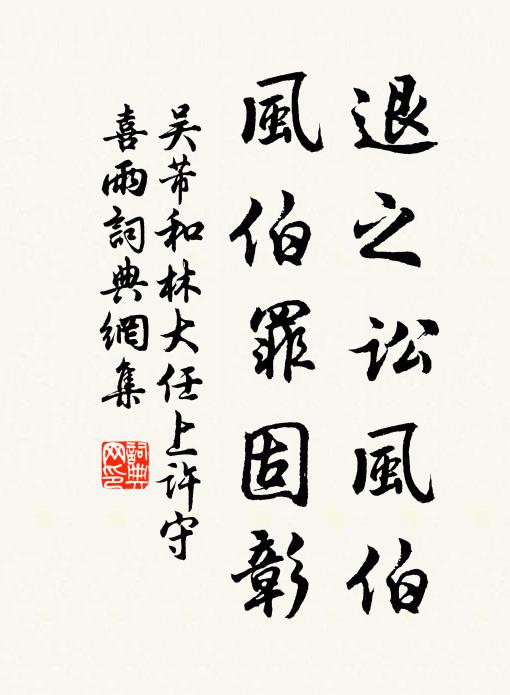 退之訟風伯
風伯罪固彰
吴芾和林大任上許守
喜雨詞典網集
詞典网印